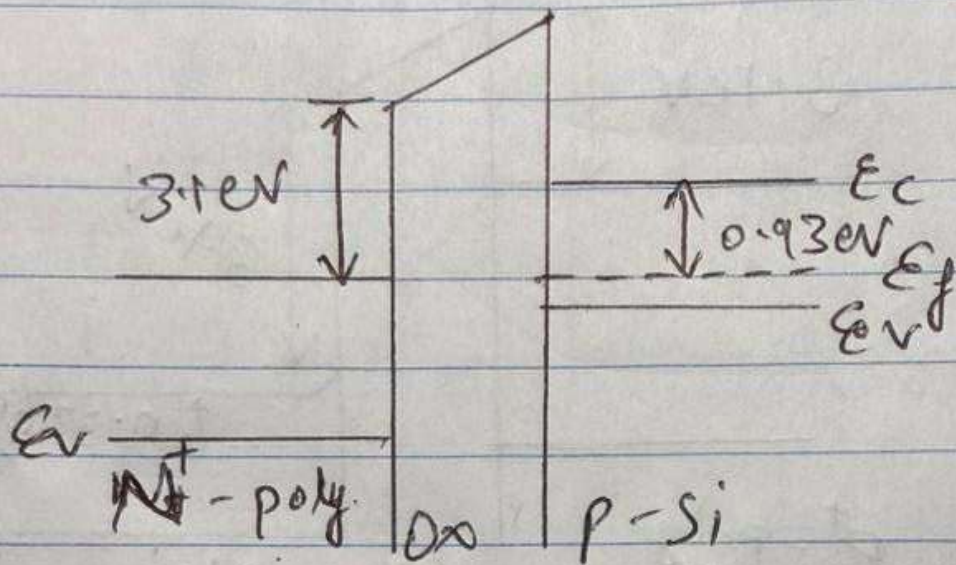 3.1 eV
Ec
0.93 eV
Ef
Ev
Ev
N+-poly.
Ox
p-Si